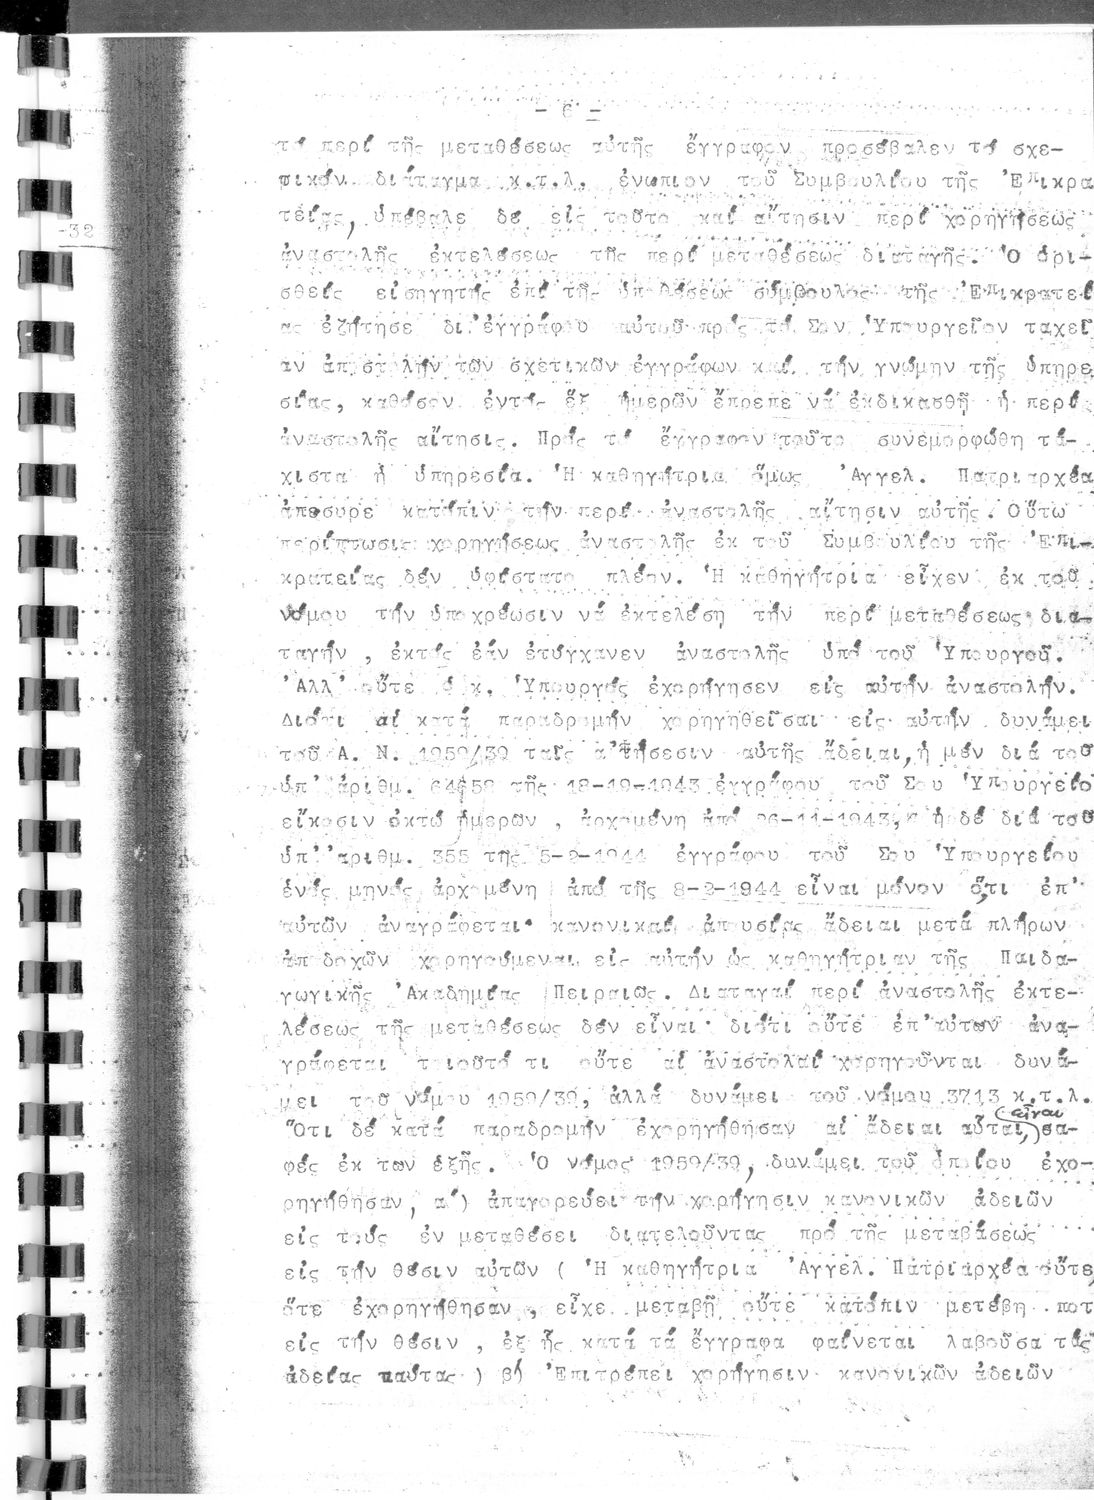 - 6 -
τό περί τῆς μεταθέσεως αὐτῆς ἔγγραφον προσέβαλεν τό σχε-
τικόν διάταγμα κ.τ.λ. ἐνώπιον τοῦ Συμβουλίου τῆς Ἐπικρα
-32
τείας, ὑπέβαλε δέ εἰς τοῦτο καί αἴτησιν περί χορηγήσεως
ἀναστολῆς ἐκτελέσεως τῆς περί μεταθέσεως διαταγῆς. Ὁ ὁρι-
σθείς εἰσηγητής ἐπί τῆς ὑποθέσεως σύμβουλος τῆς Ἐπικρατεί
ας ἐζήτησε δι'ἐγγράφου αὐτοῦ πρός τό Σον Ὑπουργεῖον ταχεῖ
αν ἀποστολήν τῶν σχετικῶν ἐγγράφων καί τήν γνώμην τῆς ὑπηρε
σίας, καθόσον ἐντός ἕξ ἡμερῶν ἔπρεπε νά ἐκδικασθῇ ἡ περί
ἀναστολῆς αἴτησις. Πρός τό ἔγγραφον τοῦτο συνεμορφώθη τά-
χιστα ἡ ὑπηρεσία. Ἡ καθηγήτρια ὅμως Ἀγγελ. Πατριαρχέα
ἀπέσυρε κατόπιν τήν περί ἀναστολῆς αἴτησιν αὐτῆς. Οὕτω
περίπτωσις χορηγήσεως ἀναστολῆς ἐκ τοῦ Συμβουλίου τῆς Ἐπι-
κρατείας δέν ὑφίστατο πλέον. Ἡ καθηγήτρια εἶχεν ἐκ τοῦ
νόμου τήν ὑποχρέωσιν νά ἐκτελέσῃ τήν περί μεταθέσεως δια-
ταγήν , ἐκτός ἐάν ἐτύγχανεν ἀναστολῆς ὑπό τοῦ Ὑπουργοῦ.
Ἀλλ' οὔτε ὁ κ. Ὑπουργός ἐχορήγησεν εἰς αὐτήν ἀναστολήν.
Διότι αἱ κατά παραδρομήν χορηγηθεῖσαι εἰς αὐτήν δυνάμει
τοῦ Α. Ν. 1950/39 ταῖς αἰτήσεσιν αὐτῆς ἄδειαι, ἡ μέν διά τοῦ
ὑπ' ἀριθμ. 64858 τῆς 18-10-1943 ἐγγράφου τοῦ Σου Ὑπουργείο
εἴκοσιν ὀκτώ ἡμερῶν , ἀρχομένη ἀπό 26-11-1943, ἡ δέ διά τοῦ
ὑπ' ἀριθμ. 355 τῆς 5-2-1944 ἐγγράφου τοῦ Σου Ὑπουργείου
ἑνός μηνός ἀρχομένη ἀπό τῆς 8-2-1944 εἶναι μόνον ὅ,τι ἐπ'
αὐτῶν ἀναγράφεται· κανονικαί ἀπουσίας ἄδειαι μετά πλήρων
ἀποδοχῶν χορηγούμεναι εἰς αὐτήν ὡς καθηγήτριαν τῆς Παιδα-
γωγικῆς Ἀκαδημίας Πειραιῶς. Διαταγαί περί ἀναστολῆς ἐκτε-
λέσεως τῆς μεταθέσεως δέν εἶναι· διότι οὔτε ἐπ'αὐτῶν ἀνα-
γράφεται τοιοῦτό τι οὔτε αἱ ἀναστολαί χορηγοῦνται δυνά-
μει τοῦ νόμου 1950/39, ἀλλά δυνάμει τοῦ νόμου 3713 κ.τ.λ.
Ὅτι δέ κατά παραδρομήν ἐχορηγήθησαν αἱ ἄδειαι αὗται, εἶναι σα-
φές ἐκ των ἑξῆς. Ὁ νόμος 1950/39, δυνάμει τοῦ ὁποίου ἐχο-
ρηγήθησαν, α') ἀπαγορεύει τήν χορήγησιν κανονικῶν ἀδειῶν
εἰς τούς ἐν μεταθέσει διατελοῦντας πρό τῆς μεταβάσεώς
εἰς τήν θέσιν αὐτῶν ( Ἡ καθηγήτρια Ἀγγελ. Πατριαρχέα οὔτε,
ὅτε ἐχορηγήθησαν , εἶχε μεταβῆ οὔτε κατόπιν μετέβη ποτ
εἰς τήν θέσιν , ἐξ ἧς κατά τά ἔγγραφα φαίνεται λαβοῦσα τάς
ἀδείας ταύτας ) β') Ἐπιτρέπει χορήγησιν κανονικῶν ἀδειῶν